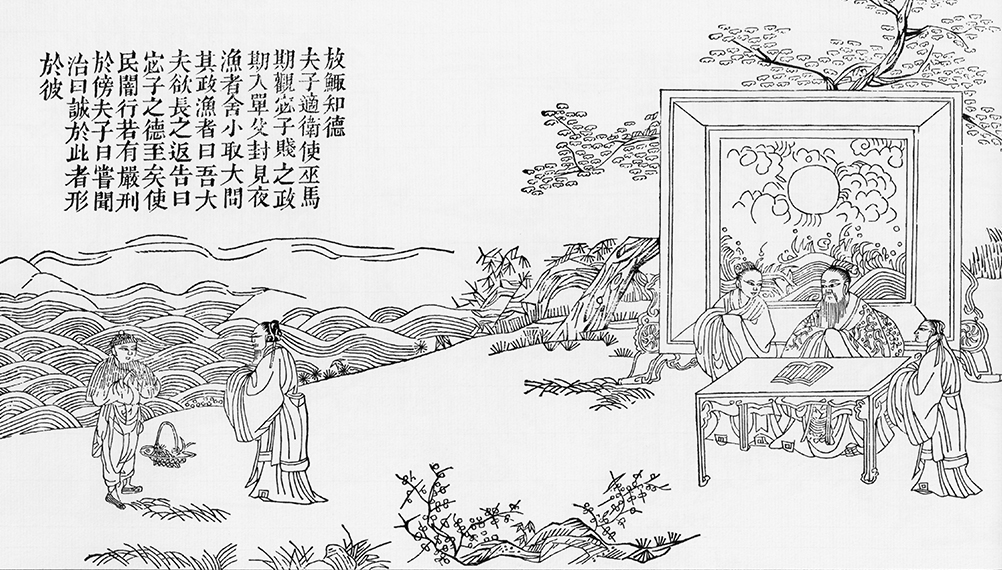 放鯫知德
夫子適衛使巫馬
期觀宓子賤之政
期入單父封見夜
漁者舍小取大問
其政漁者曰吾大
夫欲長之返告曰
宓子之德至矣使
民闇行若有嚴刑
於傍夫子曰嘗聞
治曰誠於此者形
於彼